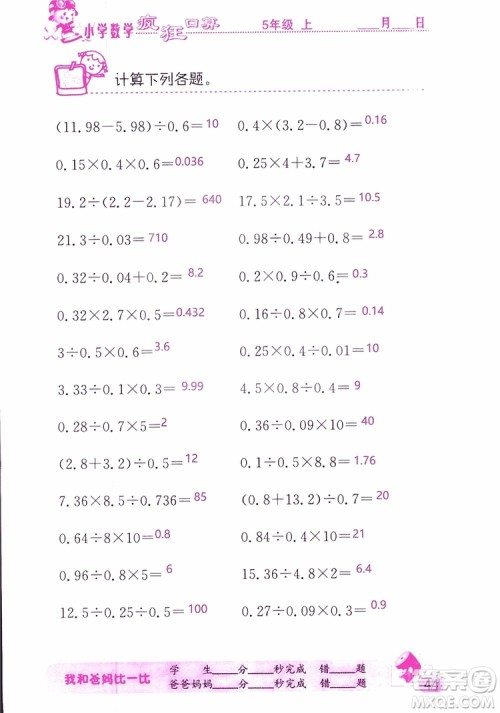 小学数学疯狂口算 5年级 上 ____月____日
计算下列各题。
(11.98-5.98)÷0.6=10 0.4×(3.2-0.8)÷6=0.16
0.15×0.4×0.6=0.036 0.25×4+3.7=4.7
19.2÷(2.2-2.17)=640 17.5×2.1÷3.5=10.5
21.3÷0.03=710 0.98÷0.49×1.4=2.8
0.32÷0.04+0.2=8.2 0.2×0.9÷0.6=0.3
0.32×2.7×0.5=0.432 0.16÷0.8×0.7=0.14
3÷0.5×0.6=3.6 0.5×0.4÷0.01=10
3.33÷0.1×0.3=9.99 4.5×0.8÷0.9=4
0.28÷0.7×5=2 0.36÷0.09×10=40
(2.8+3.2)÷0.6=10 0.1÷0.5×8.8=1.76
7.36×8.5÷0.736=85 (0.8+13.2)÷0.7=20
0.64÷8×10=0.8 0.84÷0.4×10=21
0.96÷0.8×5=6 15.36÷4.8×2=6.4
12.5÷0.25÷0.5=100 0.27÷0.09×0.3=0.9
我和爸妈比一比 学 生____分____秒完成 错____题
爸爸妈妈____分____秒完成 错____题
答案圈
MXQE.COM